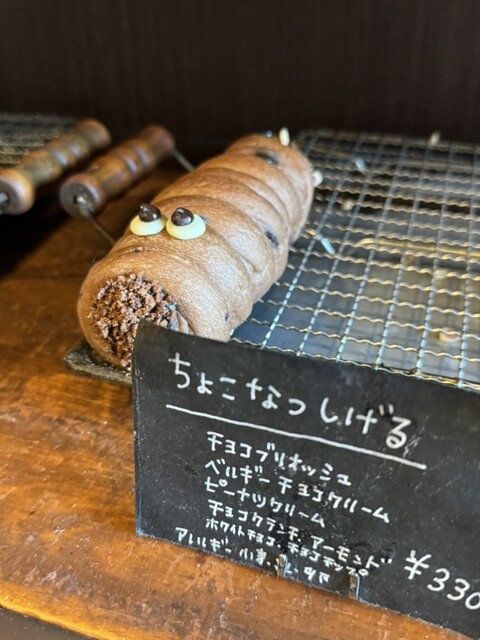 ちょこなつしげる
チョコブリオッシュ
ベルギーチョコクリーム
ピーナツクリーム
チョコクランチ アーモンド
ホワイトチョコ、チョコチップ
アレルギー 小麦、
¥330